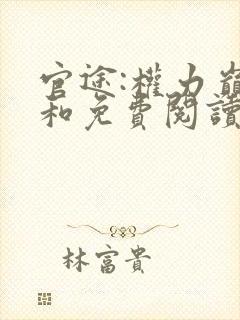 官途:權力巔
和免費閱讀
林富貴